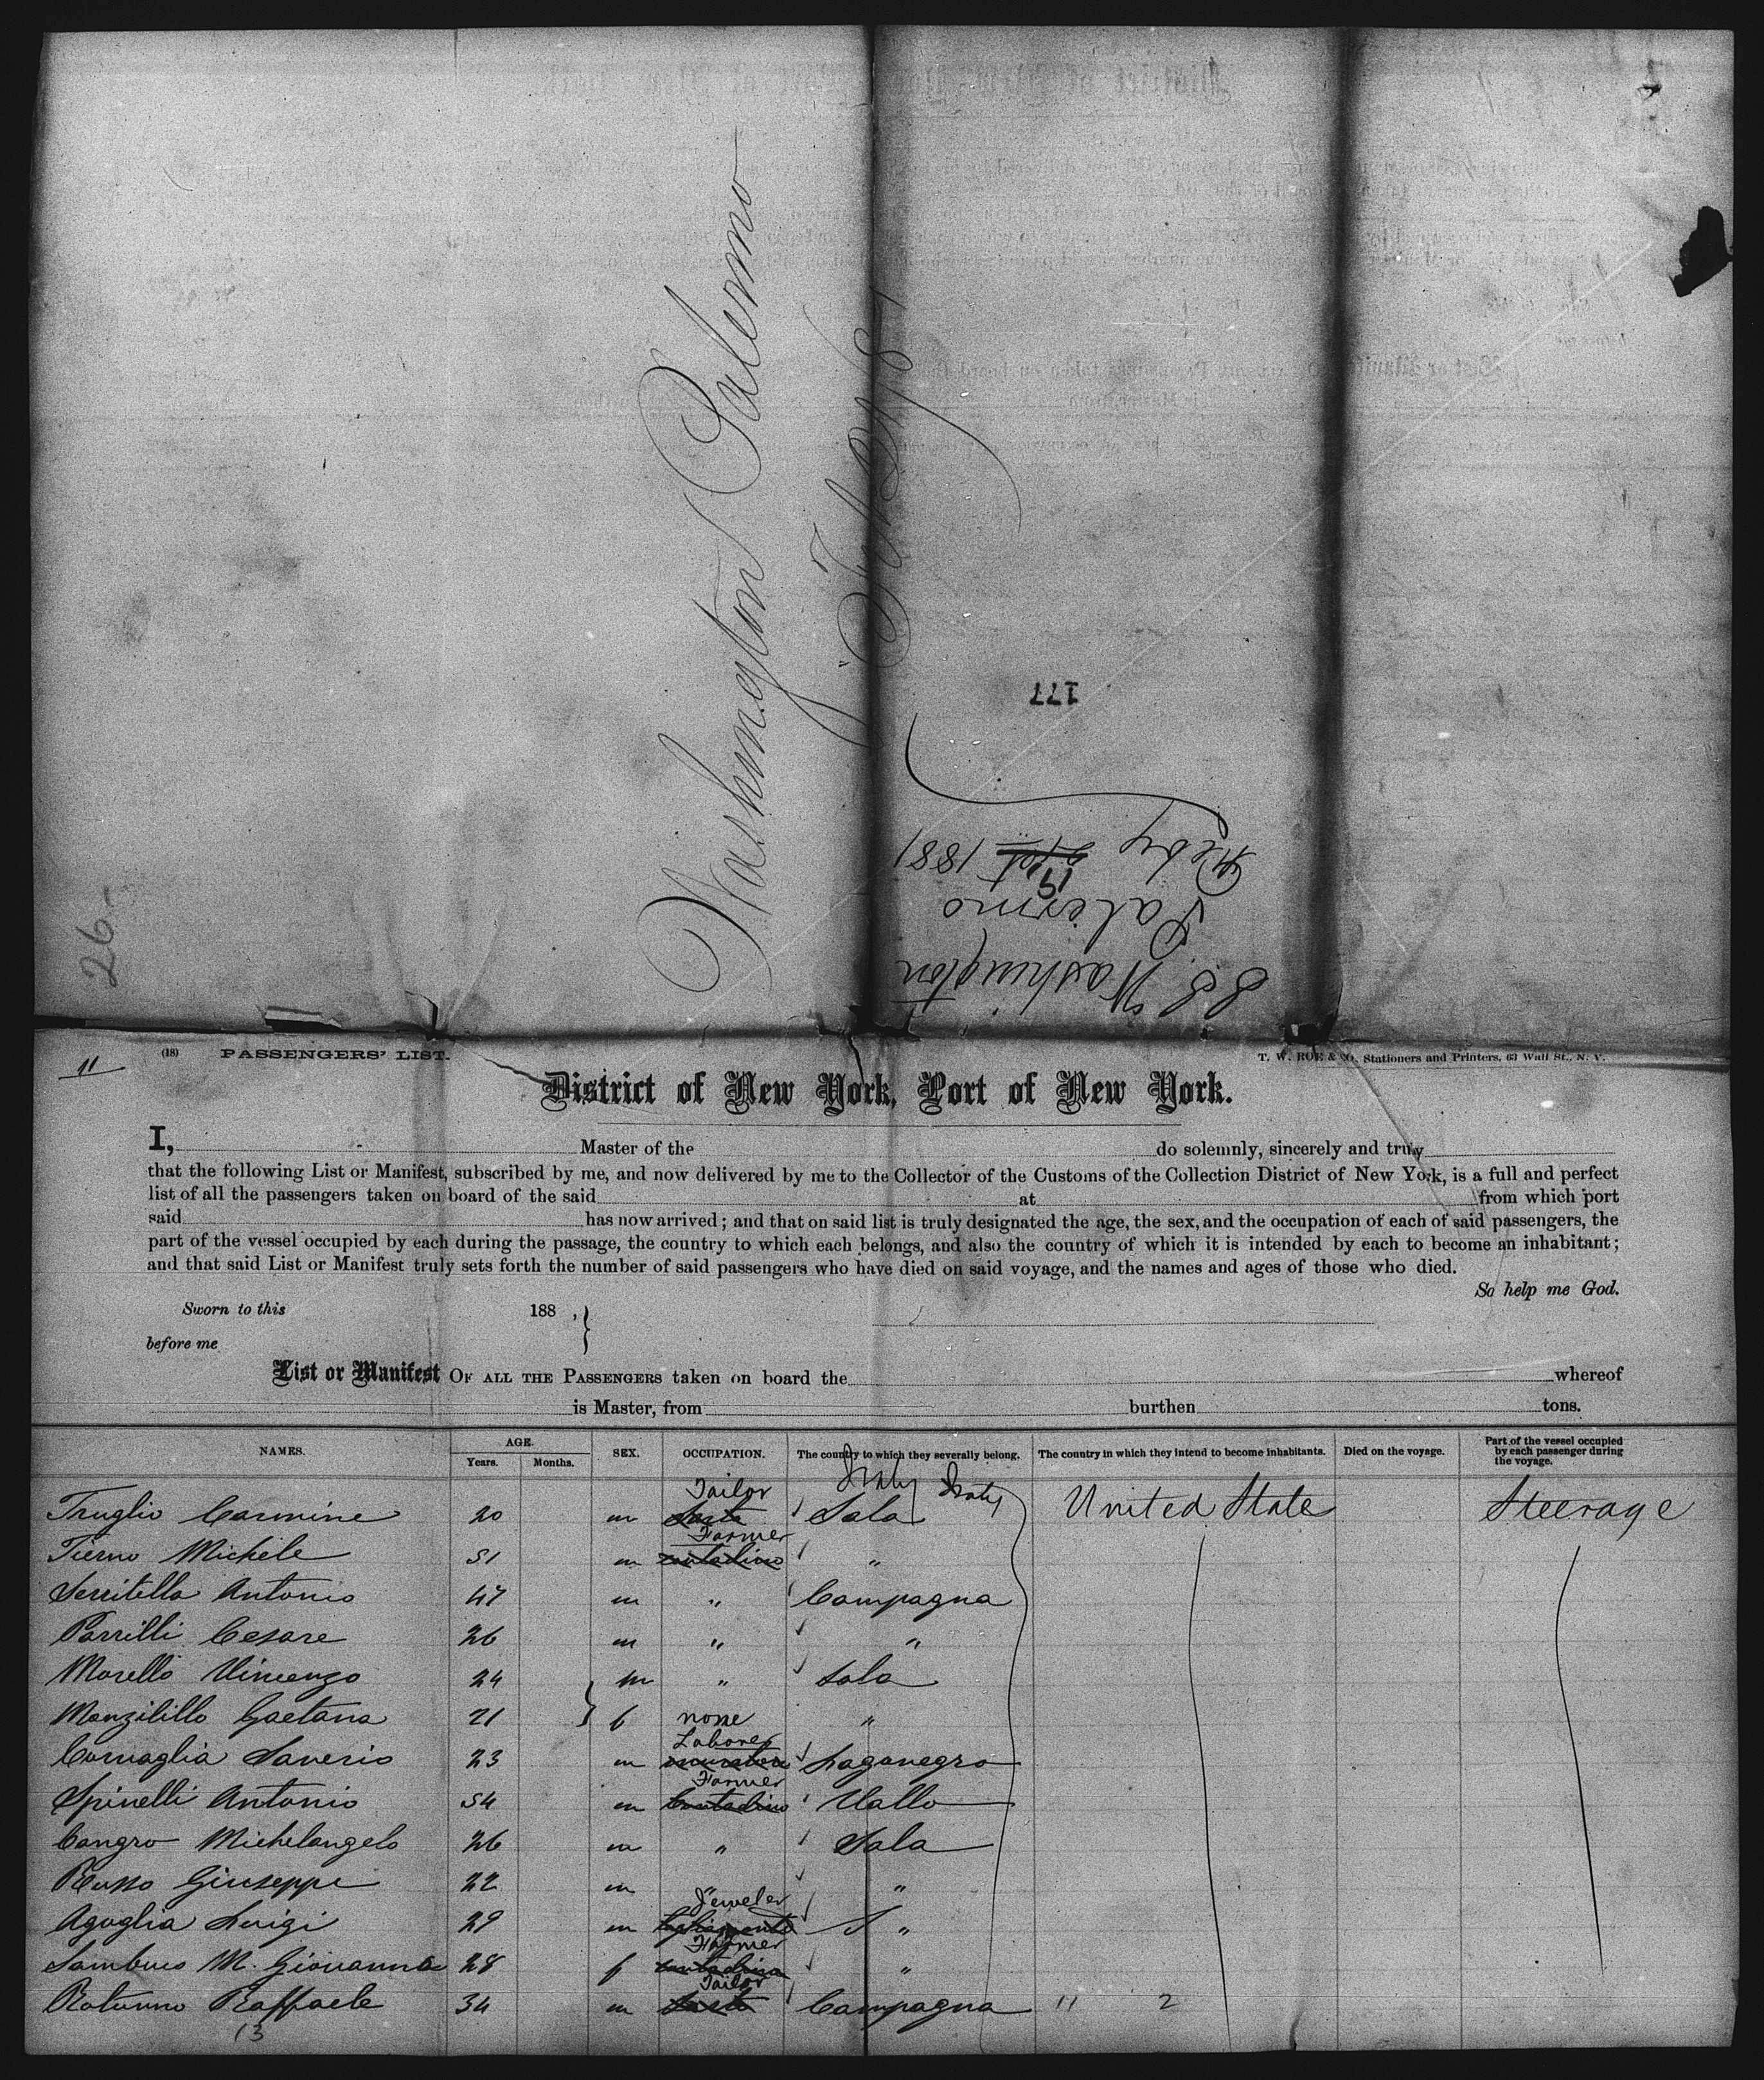 Washington Palermo
Feb 21/81
177
S.S. Washington
Palermo
19
Feby 21st 1881
26
11
(18) PASSENGERS' LIST.
T. W. ROE & CO., Stationers and Printers, 63 Wall St., N. Y.
District of New York, Port of New York.
I, Master of the do solemnly, sincerely and truly
that the following List or Manifest, subscribed by me, and now delivered by me to the Collector of the Customs of the Collection District of New York, is a full and perfect
list of all the passengers taken on board of the said at from which port
said has now arrived; and that on said list is truly designated the age, the sex, and the occupation of each of said passengers, the
part of the vessel occupied by each during the passage, the country to which each belongs, and also the country of which it is intended by each to become an inhabitant;
and that said List or Manifest truly sets forth the number of said passengers who have died on said voyage, and the names and ages of those who died.
So help me God.
Sworn to this 188 ,
before me
List or Manifest OF ALL THE PASSENGERS taken on board the whereof
is Master, from burthen tons.
NAMES. AGE. Years. Months. SEX. OCCUPATION. The country to which they severally belong. The country in which they intend to become inhabitants. Died on the voyage. Part of the vessel occupied by each passenger during the voyage.
Tailor Italy Italy
Truglio Carmine 20 m Sarto Sala United State Steerage
Farmer
Tierno Michele 51 m contadino "
Serritella Antonio 47 m " Campagna
Parrilli Cesare 26 m " "
Morello Vincenzo 24 m " Sala
Manzilillo Gaetana 21 f none "
Laborer
Cornaglia Saverio 23 m muratore Lagonegro
Farmer
Spinelli Antonio 54 m Contadino Vallo
Cangro Michelangelo 26 m " Sala
Russo Giuseppe 22 m " "
Jeweler
Agoglia Luigi 29 m "
Farmer
Sambuco M. Giovanna 28 f contadina "
Tailor
Rotunno Raffaele 34 m Sarto Campagna 11 2
13